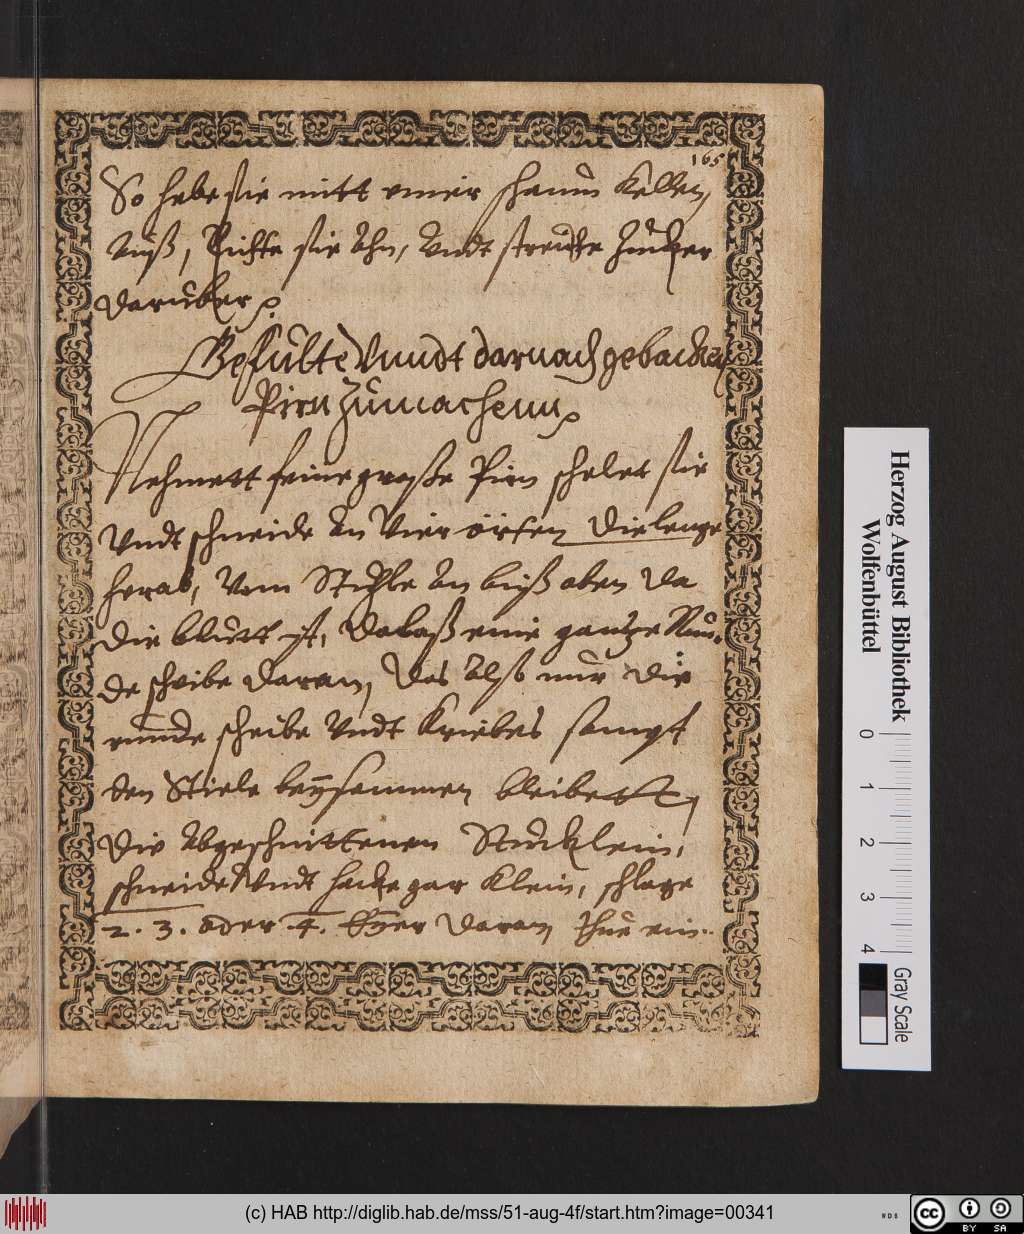 165
So hebe sie mitt einer schaum Kellen
auß, Richte sie ahn, Undt streuhe Zucker
darüber
Gefülte Vnndt darnach gebacken
Pirn Zumachenn
Nehmett feine große Pirn schelet sie
Undt schneide in Vier die lenge
herab, Vom Stihle an biß oben da
die blütt ist, Dalaß eine gantze Run-
de scheibe daran, Das also nur die
runde scheibe Undt Kriebes sampt
den Stiele beysammen bleibett,
Die Abgeschnittenen Stücklein,
schneide Undt hacke gar Klein, schlage
2. 3. oder 4. Eyer daran thue ein
Herzog August Bibliothek
Wolfenbüttel
0 1 2 3 4
Gray Scale
(c) HAB http://diglib.hab.de/mss/51-aug-4f/start.htm?image=00341
WDB
cc
BY SA